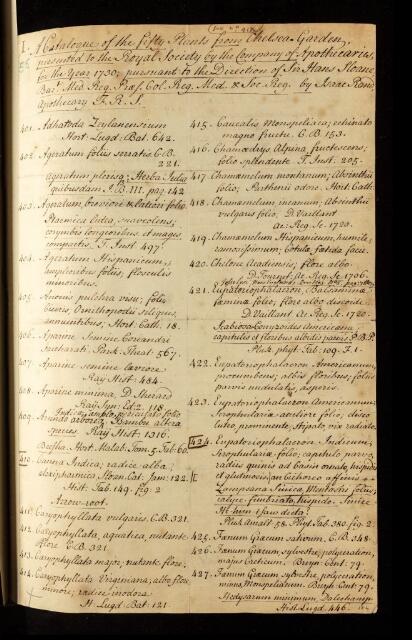 A Catalogue of the fifty Plants from Chelsea-Garden,
presented to the Royal Society by the Company of Apothecaries,
for the Year 1730, pursuant to the Direction of Sir Hans Sloane,
Bar.t Med. Reg. Præs. Col. Reg. Med. & Soc. Reg. by Isaac Rand,
Apothecary F.R.S.
401. Adhatoda Zeylanensium
Hort: Lugd: Bat. 642.
402. Ageratum foliis serratis C.B.
221.
Ageratum plerisq; Herba Julia
quibusdam I.B. III. pag. 142
403. Ageratum breviore & latiori folio
lutea, suaveolens;
corymbis longioribus et magis
compactis T. Inst 497.
404. Ageratum Hispanicum,
amplioribus foliis, flosculis
minoribus.
405. Anonis pulchra visu; foliis
Ornithopodii siliquis,
Hort: Cath. 18.
406. Aparine Semine Coriandri
Saccharati. Park. Theat. 567.
407. Aparine semine læviore
Ray Hist: 484.
408. Aparine minima D. Sherard
Ray Syn: Ed: 2. 118
409. Arundo arborea, Bambu altera
species. Ray Hist 1316.
Hort. Malab. Tom. 5 Tab. 60.
410. Canna Indica; radice alba;
alexipharmica Sloan Cat: Jam: 122.
Hist: Tab. 149. fig: 2
Arrow-root.
411. Caryophyllata vulgaris. C.B. 321.
412. Caryophyllata, aquatica, nutante
flore C.B. 321.
413. Caryophyllata major; nutante flore
414. Caryophyllata Virginiana; albo flore
minore; radice inodora
H. Lugd: Bat: 121.
415. Caucalis Monspeliaca; echinato
magno fructu. C.B. 153.
416. Chamædrys Alpina, fructescens;
folio splendente T. Inst. 205.
417. Chamæmelum montanum; Absinthii
folio; Parthenii odore. Hort. Cath:
418. Chamæmelum incanum; Absinthii
vulgaris folio, D. Vaillant
Ac: Reg. Sc. 1720.
419. Chamæmelum Hispanicum, humile,
ramosissimum, cotulæ fœtidæ facie
420. Chelone Acadiensis; flore albo
D. Tourneft. Ac. Reg. Sc. 1706.
421. Eupatoriophalacron, Balsaminæ
fæminæ folio; flore albo discoide
D. Vaillant Ac: Reg. Sc. 1720.
Scabiosa Conyzoides Americana;
capitulis et floribus albidis parvis P.B.P.
Pluk. phyt. Tab: 109. F. 1.
422. Eupatoriophalacron Americanum,
procumbens; albis flosculis; foliis
parvis undulatis, asperis.
423. Eupatoriophalacron Americanum;
Scrophulariæ autiore folio; disco
luteo, prominente, stipato vix radiato.
424. Eupatoriophalacron Indicum,
Scrophulariæ folio; capitulo parvo
radiis quinis ad basin ornato, hispido
et glutinoso; an Cichoreo affinis
Lampsana Sinica, Mentastri foliis,
calyce fimbriato, hispido. Sinice
Pluk. Amalt. 58. Phyt. Tab. 380. fig: 2.
425. Fœnum Græcum sativum. C.B. 348.
426. Fœnum Græcum sylvestre, polyceration,
majus Creticum. Breyn. Cent: 79.
427. Fœnum Græcum sylvestre, polyceration,
minus, Monspeliacum. Breyn: Cent: 79.
Medysarum minimum, Dalechampii
Hist. Lugd: 446.